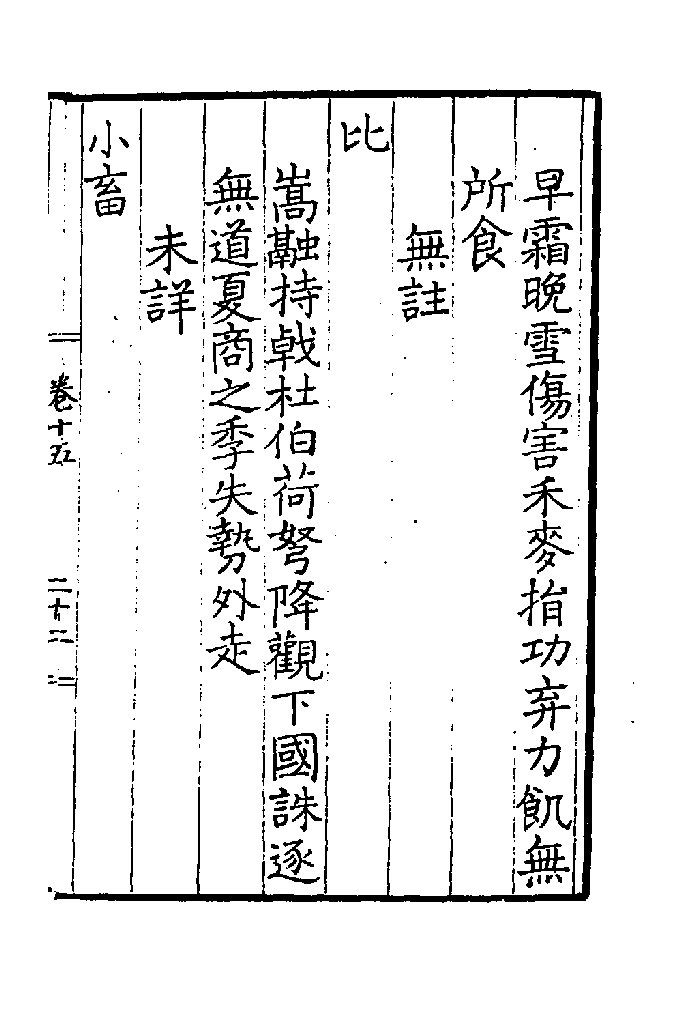 早霜晚雪傷害禾麥損功弃力飢無
所食
無註
比
嵩融持戟杜伯荷弩降觀下國誅逐
無道夏商之季失勢外走
未詳
小畜
卷十五
二十二